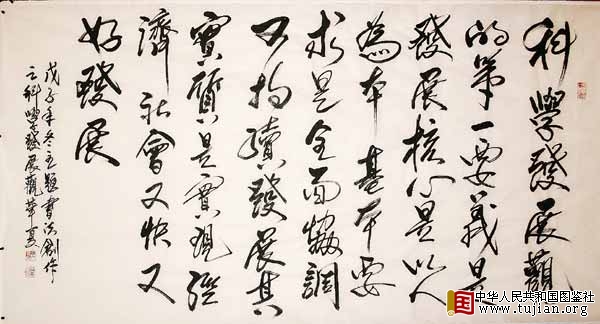 科學發展觀
的第一要義是
發展核心是以人
為本基本要
求是全面協調
可持續發展其
實質是實現經
濟社會又快又
好發展
戊子年冬主題書法創作
之科學發展觀華夏
国
中华人民共和国图鉴社
www.tujian.org